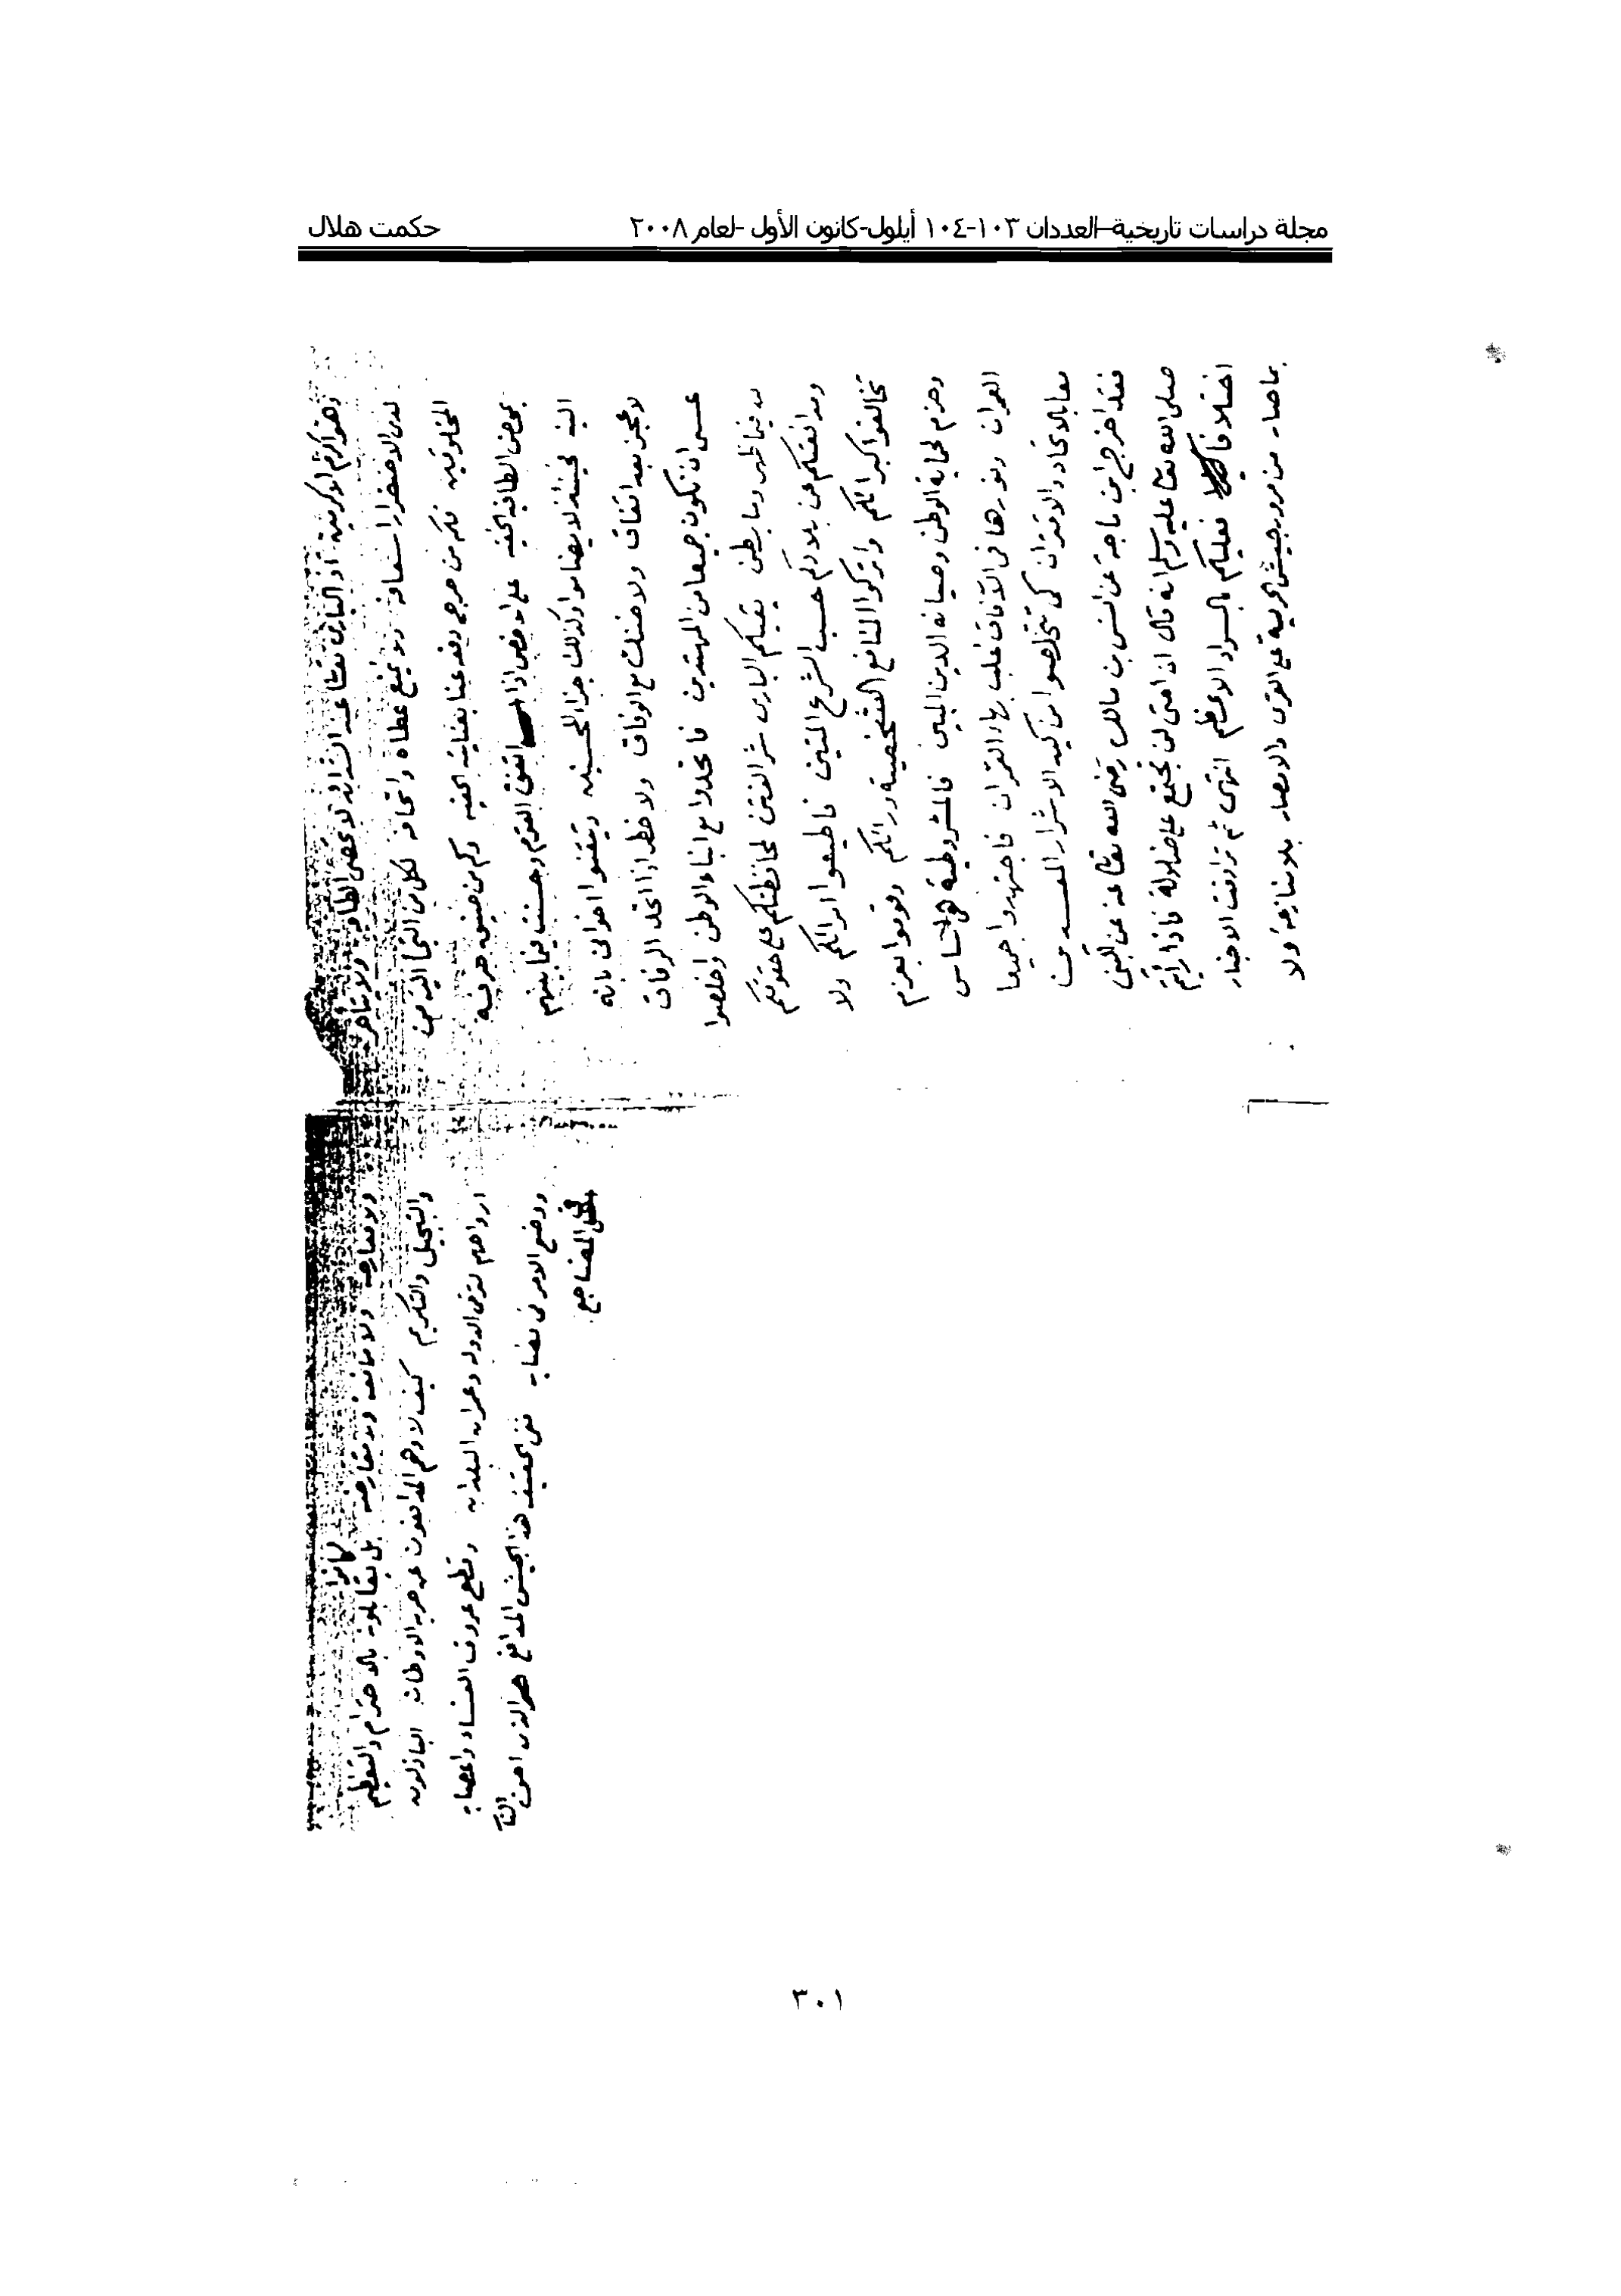 مجلة دراسات تاريخية-العددان ١٠٣-١٠٤ أيلول-كانون الأول -لعام ٢٠٠٨
حكمت هلال
وهو اكرم الاكرمين اذ الباري تعالى عند الشدائد لا تحصى الطافه ولا تتأخر
لدى الاضطرار اسعافه ولا تمنع عطاه واتحافه لكل من التجأ اليه من
المخلوقين فكم من حرج دفعه عنا بعنايته الخفيه وكم من ضيق فرجه
بمحض الطافه الخفيه على انه اذا اتفق القوم وحسنت فيما بينهم
النيه فحينئذ لا يضاموا وكذلك جزاء المحسنين وتيقنوا اخواني بانه
لا عجز بعد اتفاق ولا ضنك مع الوفاق ولا خطر اذا اتحد الرفاق
عسى ان نكون جميعا من المهتدين فاتحدوا مع ابناء الوطن واخلصوا
لله فيما ظهر وما بطن يقيكم الباري شر الفتن لمحافظتكم على حقوقكم
ومدافعتكم عن بلادكم حسب الشرع المتين فاطيعوا امرائكم ولا
تخالفوا كبرائكم واتركوا المنافع الشخصية ورائكم وقوموا بعزم
وحزم لحماية الوطن وصيانه الدين المبين فالمشروطية هي اساس
العمران ونورها في الآفاق فاجتهدوا جميعا
معا بالاتحاد والاقتران كي تتخلصوا من كيد الاشرار المفسدين
فقد اخرج ابن ماجة عن انس بن مالك رضى الله تعالى عنه عن النبي
صلى الله تعالى عليه وسلم انه قال ان امتي لن تجتمع على ضلالة فاذا رأيتم
اختلافا فعليكم بالسواد الاعظم انتهى ثم ترادفت الاخبار
بما صار من مرور جيش الحرية على القرى والامصار بلا منازعه ولا
ولا معارضه ولا ممانعه ولا مقارضه بل يقابلونه بالاحترام والتعظيم
والتبجيل والتكريم كيف لا وهم المدافعون عن حرية الاوطان الباذلون
ارواحهم لترقي الدوله وعمران البلدان وقطع عروق الفساد واعصابه
ووضع الامر في نصابه ففي الحقيقه هذا الجيش المدافع هو الذي امن
في المضاجع
٢٠١